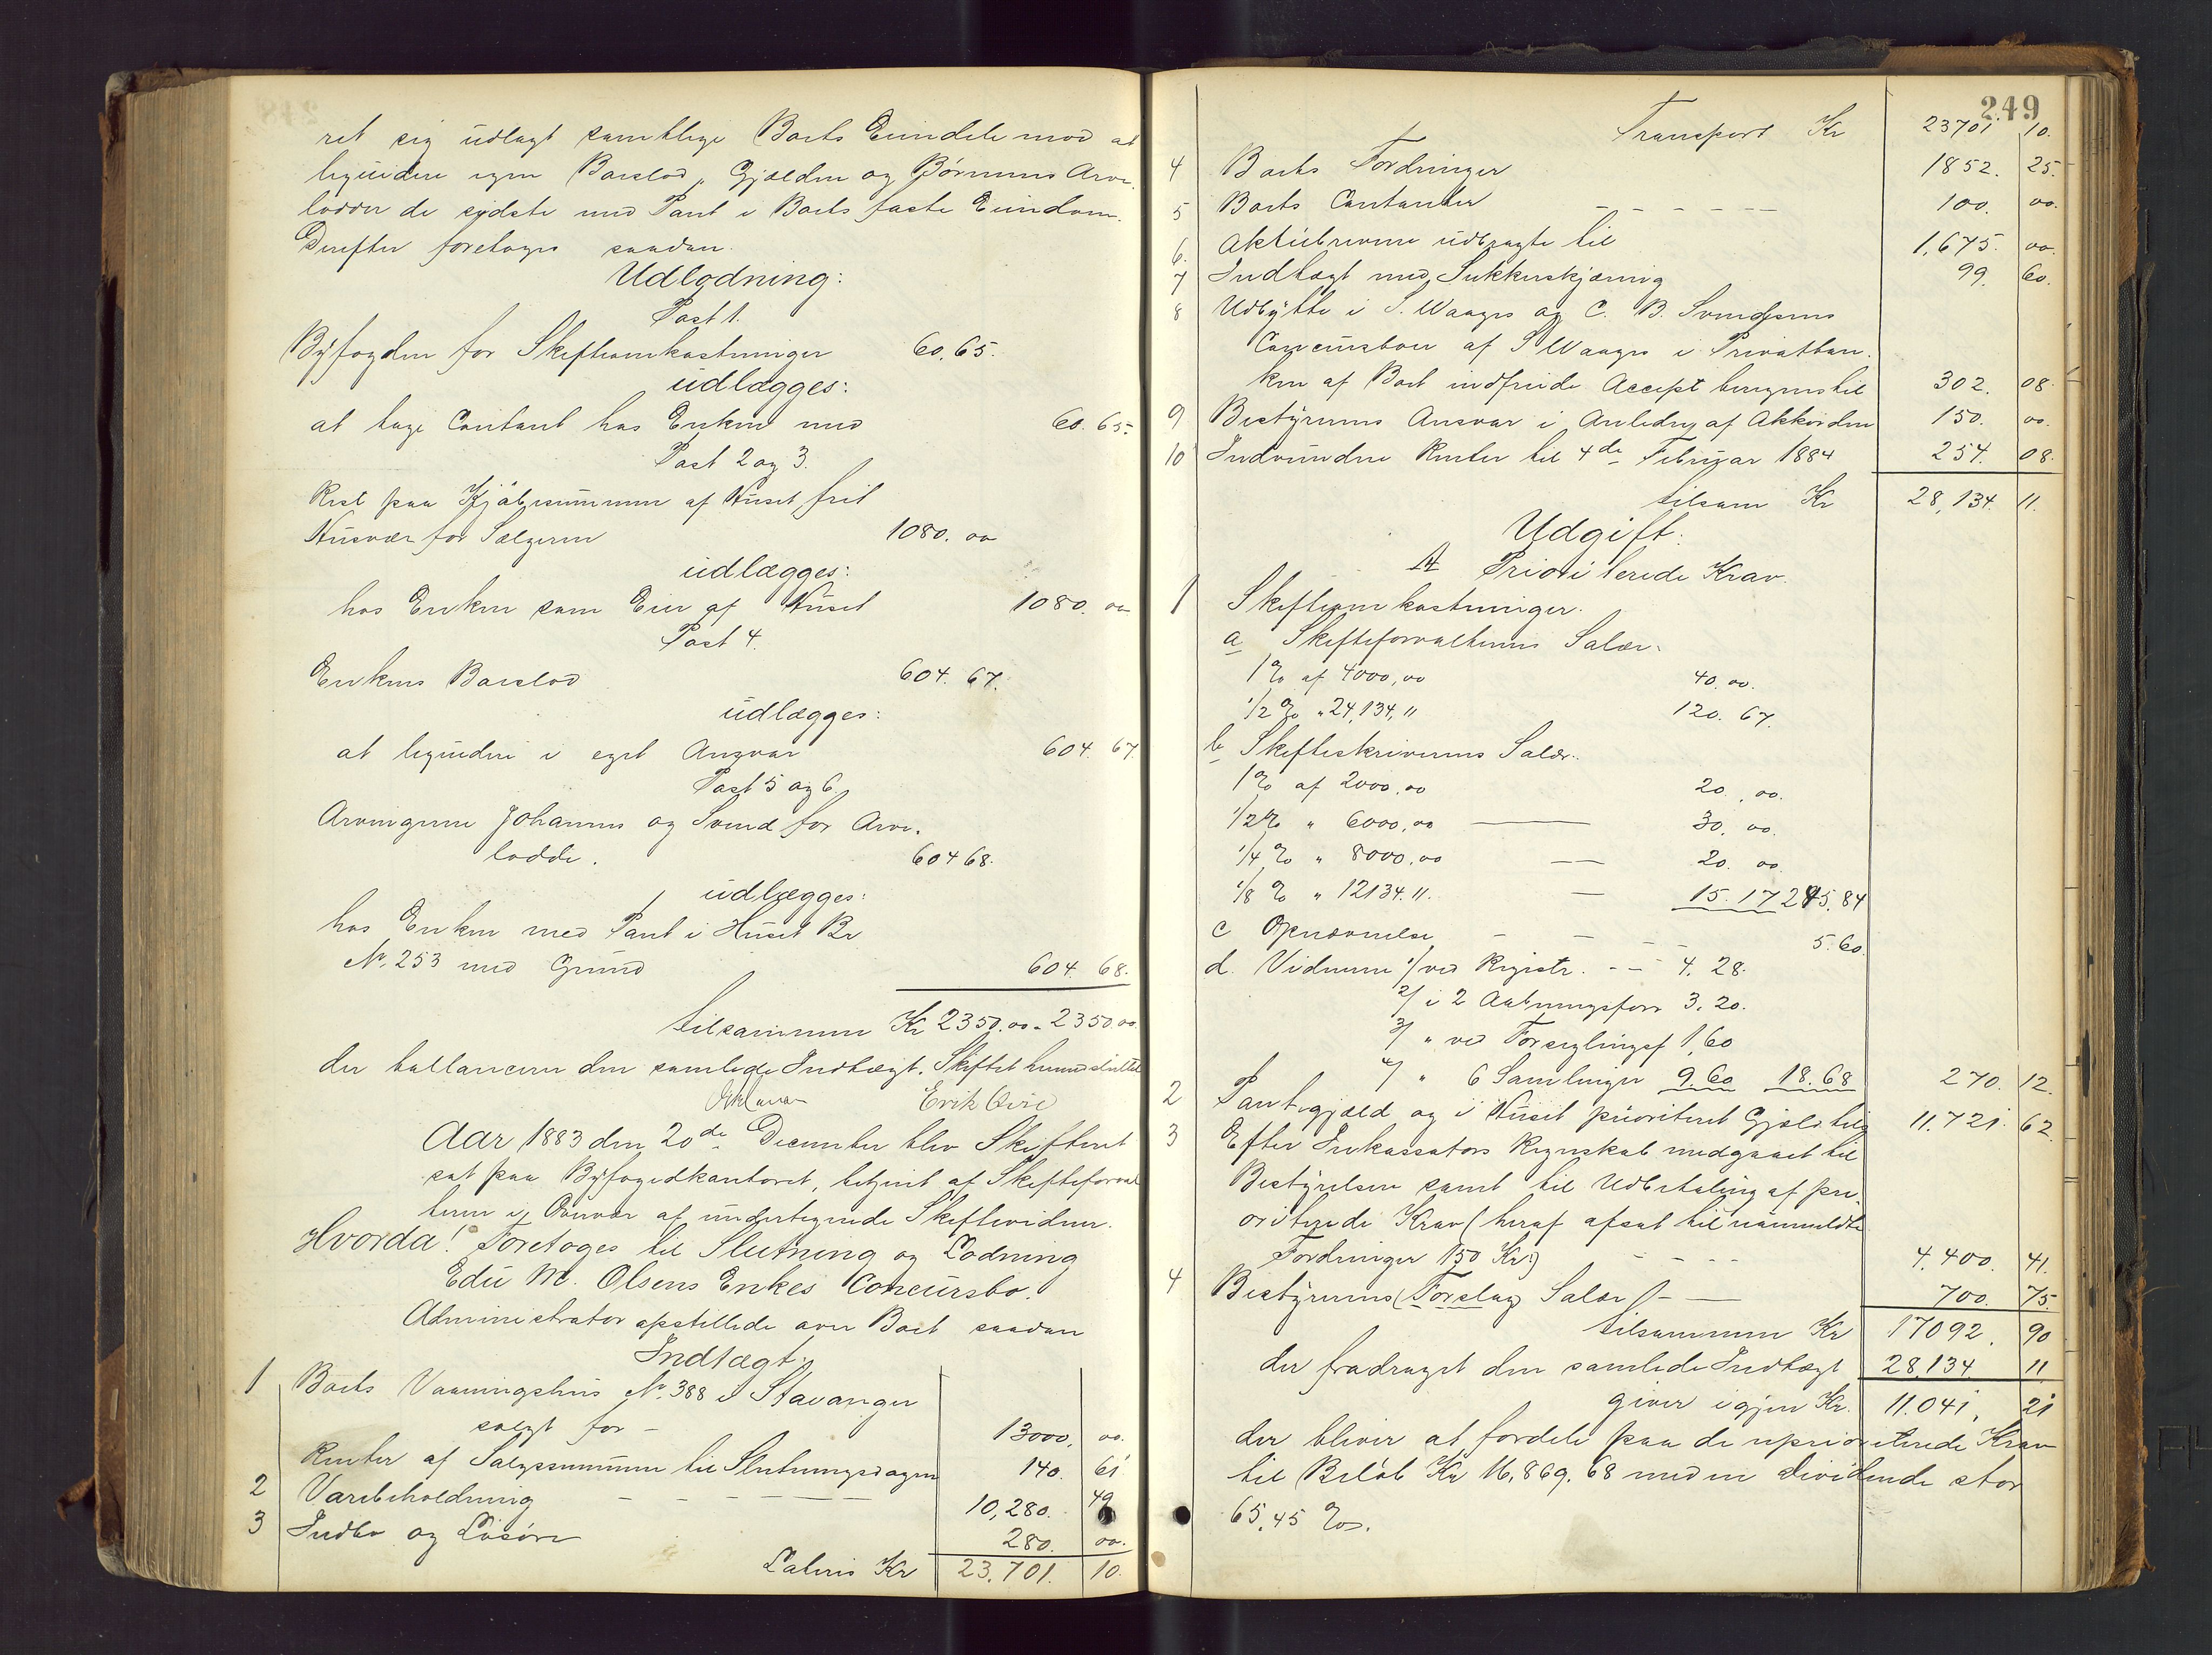 ret sig udlagt samtlige Boets Eiendele mod at
liquidere egen Boeslod, Gjælden og Børnenes Arve-
lodder de sidste med Pant i Boets faste Eiendom.
Derefter foretoges saadan
Udlodning:
Post 1.
Byfogden for Skifteomkostninger 60.65.
udlægges:
at tage Contant hos Enken med 60.65.
Post 2 og 3.
Rest paa Kjøbesummen af Huset frit
Husvær for Sælgeren 1080.00
udlægges:
hos Enken som Eier af Huset 1080.00
Post 4.
Enkens Boeslod 604.67.
udlægges:
at liquidere i eget Ansvar 604.67
Post 5 og 6.
Arvingerne Johannes og Svend for Arve-
lodde. 604 68.
udlægges:
hos Enken med Pant i Huset Br
No. 253 med Grund 604.68.
tilsammen Kr 2350.00 - 2350.00
der ballancerer den samlede Indtægt. Skiftet hermed sluttet
Erik
Aar 1883 den 20de December blev Skifteret
sat paa Byfogedkontoret, betjent af Skifteforval
teren i Overvær af undertegnede Skiftevidner.
Hvorda! Foretoges til Slutning og Lodning
Edu M. Olsens Enkes Concursbo.
Administrator opstillede over Boet saadan
Indtægt.
1 Boets Vaaningshus No. 388 i Stavanger
solgt for - 13000. 00.
Renter af Salgssummen til Slutningsdagen 140. 61
2 Varebeholdning 10,280. 49
3 Indbo og Løsøre 280. 00.
Lateris Kr 23.701. 10.
249
Transport Kr 23701 10.
4 Boets Fordringer 1852. 25.
5 Boets Contanter 100. 00.
6. Aktiebrevene udbragte til 1,675. 00.
7 Indtægt med Sukkerskjæring 99. 60.
8 Udbytte i S. Waages og C. B. Svendsens
Concursboer af S Waages i Privatban-
ken af Boet indfriede Accept beregnes til 302. 08.
9 Bestyrerens Ansvar i Anledng af Akkorden 150. 00.
10 Indvundne Renter til 4de Februar 1884 254. 08.
tilsam Kr 28,134. 11.
Udgift:
A Prioriterede Krav.
1 Skifteomkostninger.
a Skifteforvalterens Salær.
1% af 4000,00 40.00.
1/2 % " 24,134,11 120.67.
b Skifteskriverens Salær.
1% af 2000,00 20.00.
1/2% " 6000,00 30.00.
1/4 % " 8000,00 20.00
1/8 % " 12134.11. 15.17 245.84
c Opnævnelse 5.60.
d. Vidnerne 1/ ved Registr. 4.28.
2/ i 2 Aabningsforr 3.20.
3/ " ved Forseglingsf 1,60
4/ " 6 Samlinger 9.60 18.68 270. 12.
2 Pantegjæld og i Huset prioriteret Gjæld tilg 11.721. 62.
3 Efter Inkassators Regnskab medgaaet til
Bestyrelsen samt til Udbetaling af pri-
oriterede Krav (heraf afsat til uanmeldte
Fordringer 150 Kr.) 4.400. 41.
4 Bestyrerens (Forslag) Salær 700. 75.
tilsammen Kr 17092. 90
der fradraget den samlede Indtægt 28,134 11
giver igjen Kr. 11.041, 21
der bliver at fordele paa de uprioriterede Krav
til Beløb Kr 16,869.68 med en Dividende stor
65,45 %.